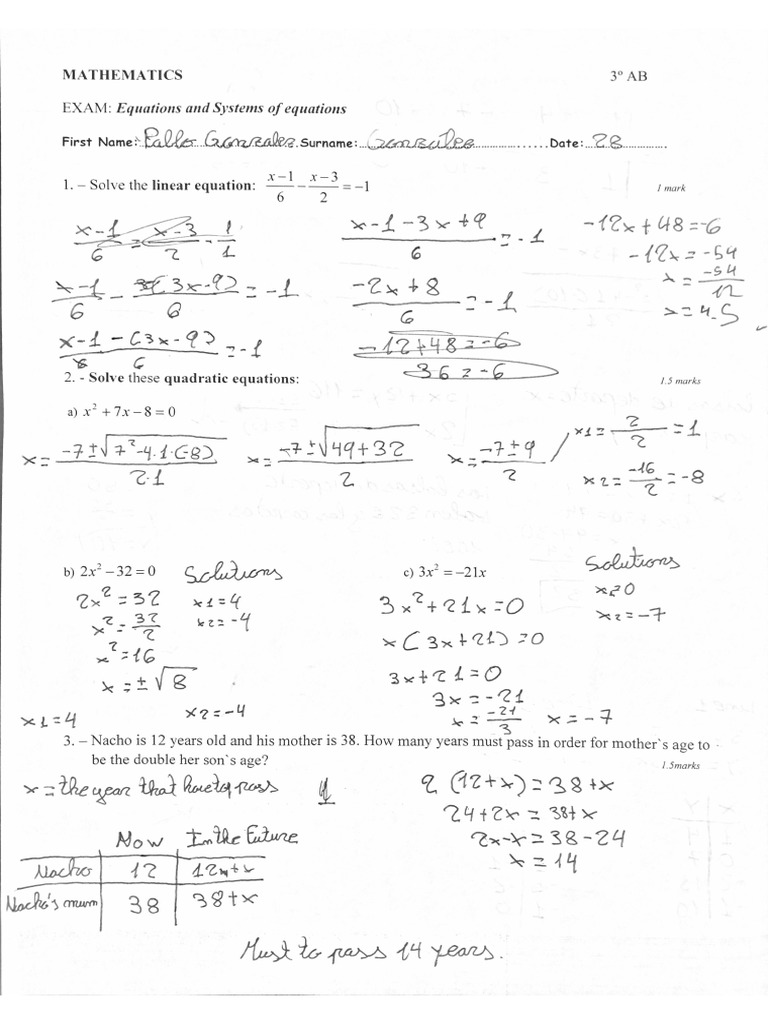 MATHEMATICS 3º AB
EXAM: Equations and Systems of equations
First Name: Pallo Gonzalez Surname: Gonzalez Date: 28
1. – Solve the linear equation: (x−1)/6 − (x−3)/2 = −1 1 mark
x-1/6 = x-3/2 - 1/1
x-1/6 - (3x-9)/6 = -1
x-1-(3x-9)/6 = -1
x-1-3x+9/6 = -1
-2x+8/6 = -1
-12+48=-6
36=-6
-12x+48=-6
-12x=-54
x=-54/12
x=4.5
2. - Solve these quadratic equations: 1.5 marks
a) x² + 7x − 8 = 0
x= -7±√7²-4.1.(-8)/2.1 x= -7±√49+32/2 x= -7±9/2 x1=2/2=1
x2=-16/2=-8
b) 2x² − 32 = 0 Solutions
2x²=32 x1=4
x²=32/2 x2=-4
x²=16
x=±√8
x1=4 x2=-4
c) 3x² = −21x Solutions
3x²+21x=0 x=0
x(3x+21)=0 x2=-7
3x+21=0
3x=-21
x=-21/3 x=-7
3. – Nacho is 12 years old and his mother is 38. How many years must pass in order for mother`s age to
be the double her son`s age? 1.5marks
x=the year that have to pass
Now In the Future
Nacho 12 12+x
Nacho's mum 38 38+x
2(12+x)=38+x
24+2x=38+x
2x-x=38-24
x=14
Must to pass 14 years.